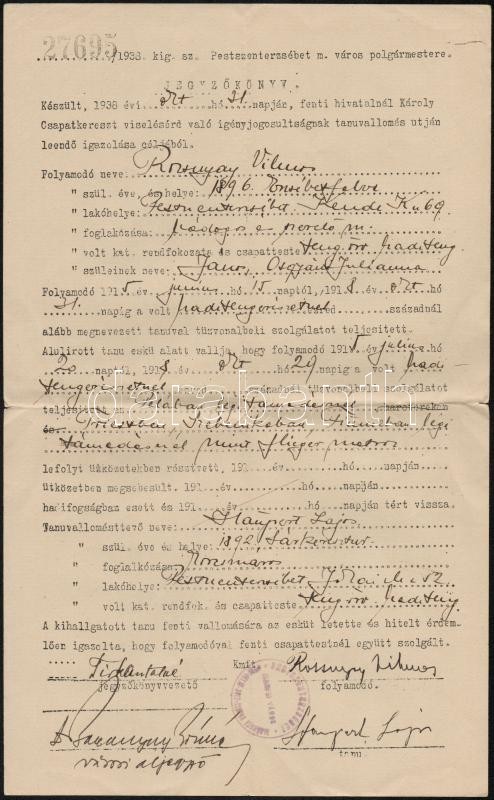 27695
/1938. kig. sz. Pestszenterzsébet m. város polgármestere.
JEGYZŐKÖNYV.
Készült, 1938 évi okt hó 31 napján, fenti hivatalnál Károly
Csapatkereszt viselésérő való igényjogosultságnak tanuvallomás utján
leendő igazolása céljából.
Folyamodó neve: Rozsnyay Vilmos
" szül. éve és helye: 1896. Erzsébetfalva
" lakóhelye: Pestszenterzsébet, Kende K u 69
" foglakozása: szerelő m.
" volt kat. rendfokozata és csapatteste teng. őrv. haditeng
" szüleinek neve: János, Juliánna
Folyamodó 1915 év junius hó 15 naptól, 1918 év okt hó
31. napig a volt haditengerészetnél századnál
alább megnevezett tanuval tüzvonalbeli szolgálatot teljesitett.
Alulirott tanu eskü alatt vallja, hogy folyamodó 1915 julius hó
20 naptól, 1918 okt 29 napig a volt hadi
tengerészetnél századnál tüzvonalbeli szolgálatot
teljesitett Pólában légi támadásnál harctereken
és Triesztben légi
támadásnál mint flieger matros
lefolyt ütközetekben résztvett, 191 év hó napján
ütközetben megsebesült. 191 év hó napján
hadifogságban esett és 191 év hó napján tért vissza.
Tanuvallomásttevő neve: Lajos
" szül. éve és helye: 1892. Sárkeresztur
" foglalkozása:
" lakóhelye: Pestszenterzsébet, Jókai M u 52
" volt kat. rendfok. és csapatteste: teng. őrv. haditeng
A kihallgatott tanu fenti vallomására az esküt letette és hitelt érdem-
lően igazolta, hogy folyamodóval fenti csapattestnél együtt szolgált.
Kmft. Rozsnyay Vilmos
jegyzőkönyvvezető folyamodó.
Lajos
városi aljegyző tanu.
darabanth